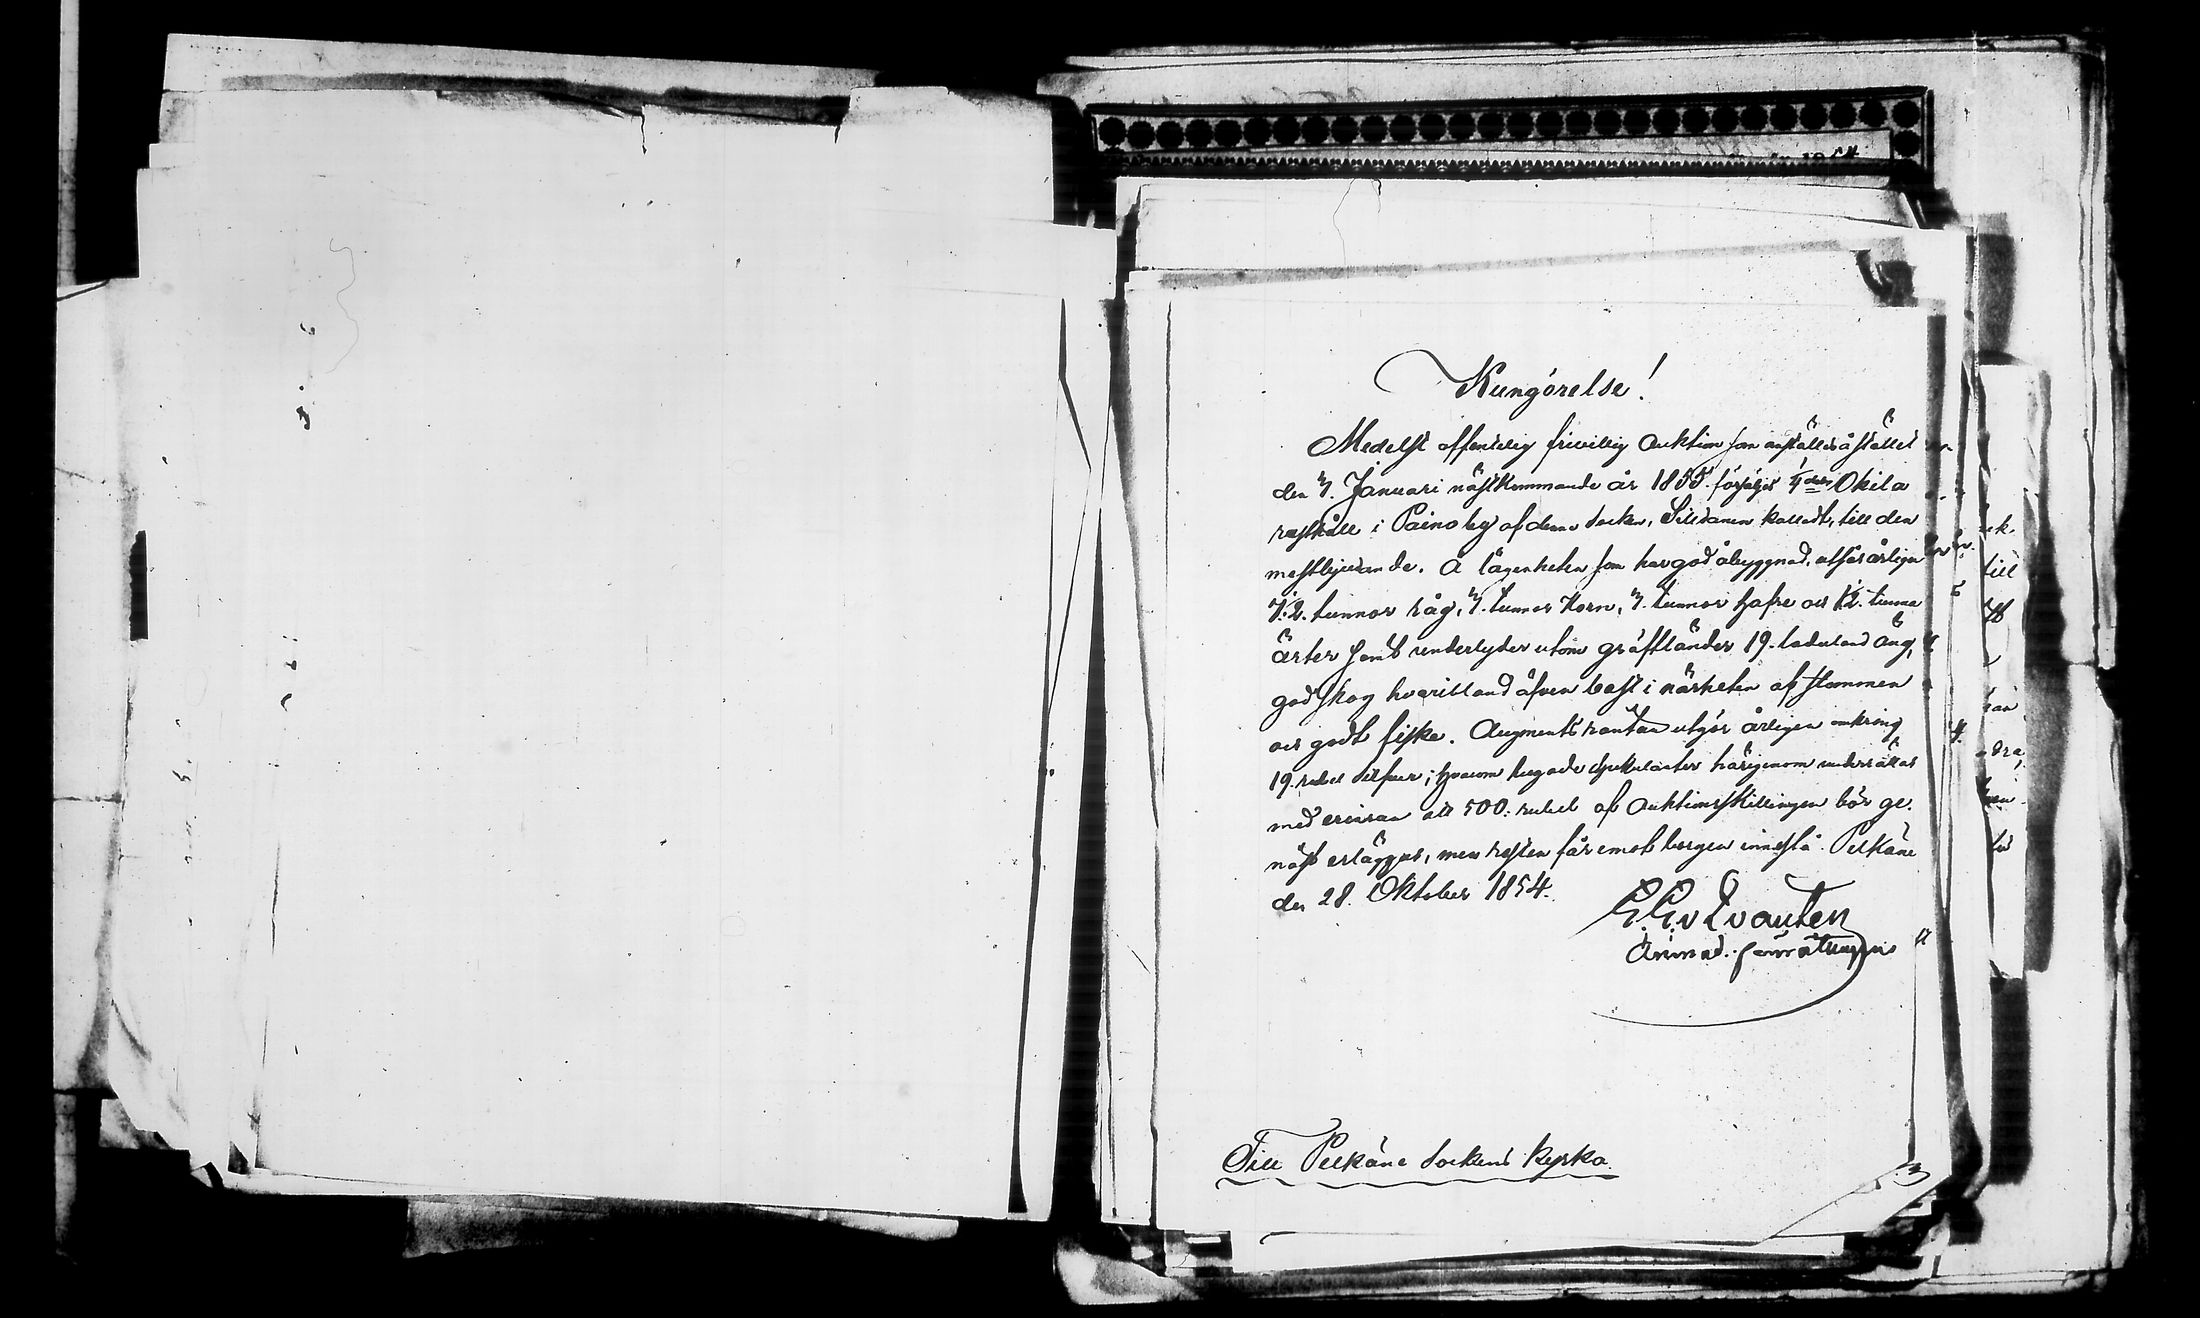 Kungörelse!
Medelst offentelig frivillig Auktion som anställes å stället
den 7. Januari nästkommande år 1855. försäljes Okila
rusthåll i Paino by af denna Socken, kalladt, till den
mestbjudande. Å lägenheten som har god åbyggnad, utsås årligen
tunnor råg, 7. tunnor Korn, 7. tunnor Hafre och 1/2. tunna
ärter samt underlyder utom gräftländer 19. laduland äng,
god skog hvaribland äfven bast i närheten af stommen
och godt fiske. Augments räntan utgör årligen omkring
19. rubel Silfver; hvarom hugade spekulanter härigenom underrättas
med erinran att 500. rubel af Auktionsskillingen bör ge-
näst erläggas, men resten får emot borgen innestå. Pelkäne
den 28. Oktober 1854.
Till Pelkäne Sockens Kyrka.